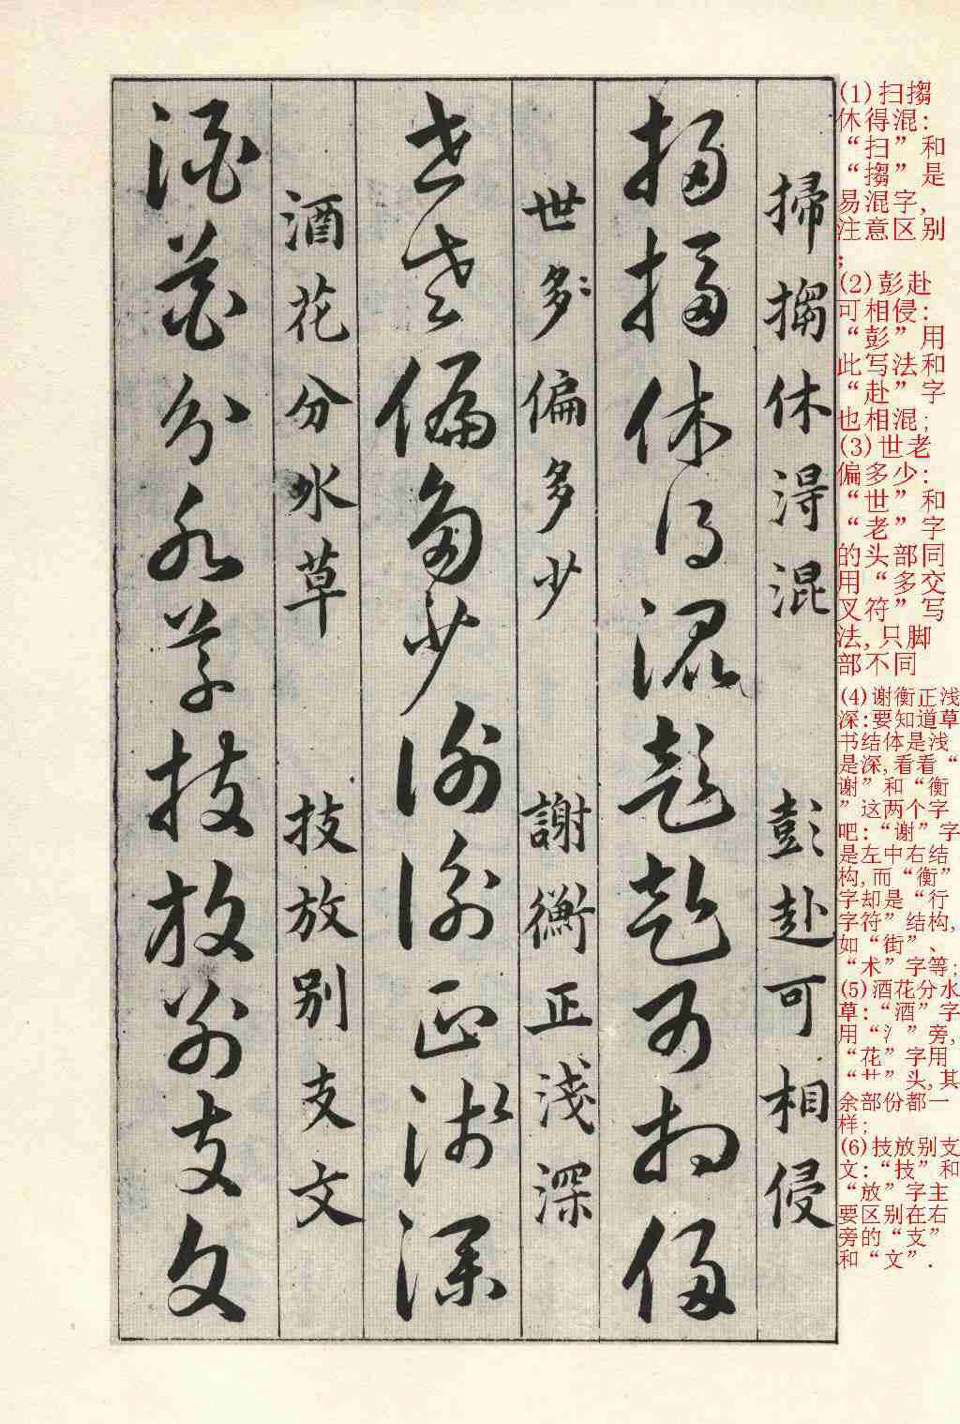 掃搊休得混　彭赴可相侵
掃搊休得混彭赴可相侵
世老偏多少　謝衡正淺深
世老偏多少謝衡正淺深
酒花分水草　技放别支文
酒花分水草技放别支文
(1)扫搊
休得混:
“扫”和
“搊”是
易混字,
注意区别
;
(2)彭赴
可相侵:
“彭”用
此写法和
“赴”字
也相混;
(3)世老
偏多少:
“世”和
“老”字
的头部同
用“多交
叉符”写
法,只脚
部不同
(4)谢衡正浅
深:要知道草
书结体是浅
是深,看看“
谢”和“衡
”这两个字
吧:“谢”字
是左中右结
构,而“衡”
字却是“行
字符”结构,
如“街”、
“术”字等;
(5)酒花分水
草:“酒”字
用“氵”旁,
“花”字用
“艹”头,其
余部份都一
样;
(6)技放别支
文:“技”和
“放”字主
要区别在右
旁的“支”
和“文”.